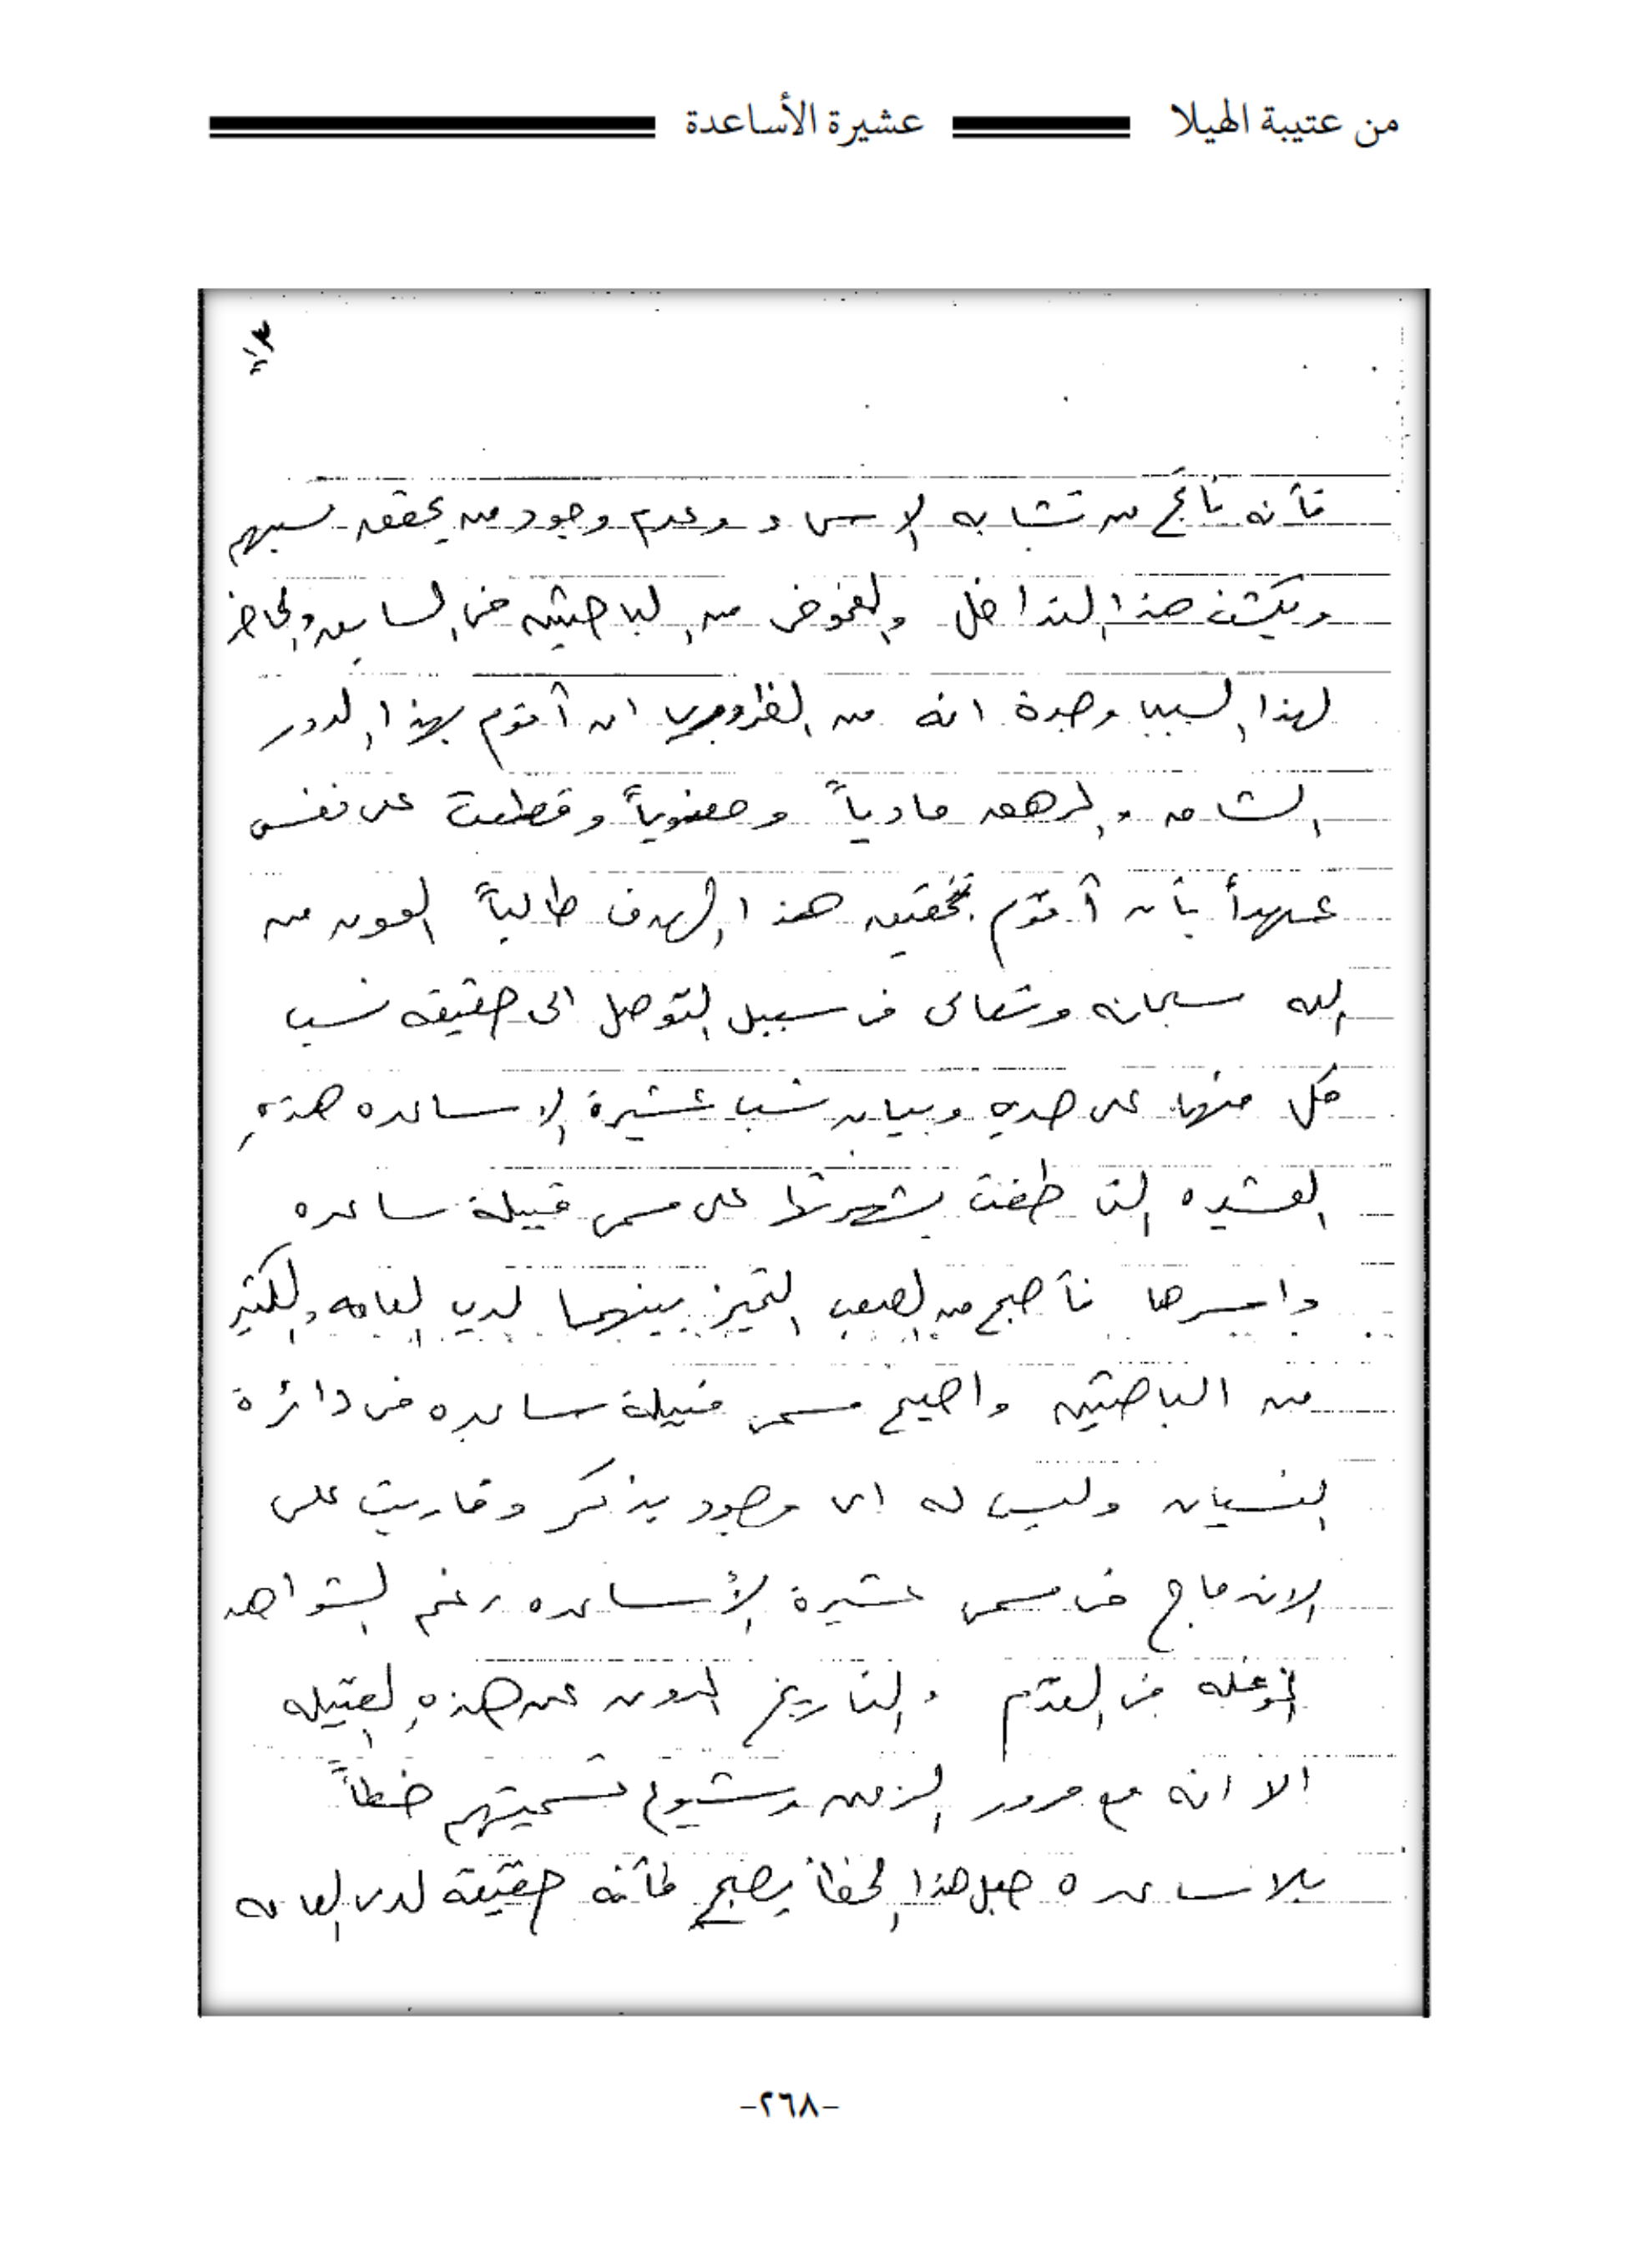 من عتيبة الهيلا عشيرة الأساعدة
٣
فأنه ناتج من تشابه الاسماء وعدم وجود من يحقق نسبهم
ويكشف هذا التداخل والغموض من الباحثين في السابق والحاضر
لهذا السبب وجدة انه من الظروري ان أقوم بهذا الدور
الشاق والمرهق مادياً ومعنوياً وقطعت على نفسي
عهداً بأن أقوم بتحقيق هذا الهدف طالباً العون من
الله سبحانه وتعالى في سبيل التوصل الى حقيقة نسب
كل منها على حده وبيان نسب عشيرة الاساعده هذه
العشيره التي طغت بشهرتها على مسمى قبيلة ساعده
واسرها فأصبح من الصعب التميز بينهما لدى العامه والكثير
من الباحثين واصبح مسمى قبيلة ساعده في دائرة
النسيان وليس له اى وجود يذكر وقاربت على
الاندماج في مسمى عشيرة الأساعده رغم الشواهد
الموغله في القدم والتاريخ المدون عن هذه القبيله
الا انه مع مرور الزمن وشيوع تسميتهم خطأً
بلاساعده جعل هذا الخطأ يصبح كأنه حقيقة لدى العامه
-٢٦٨-